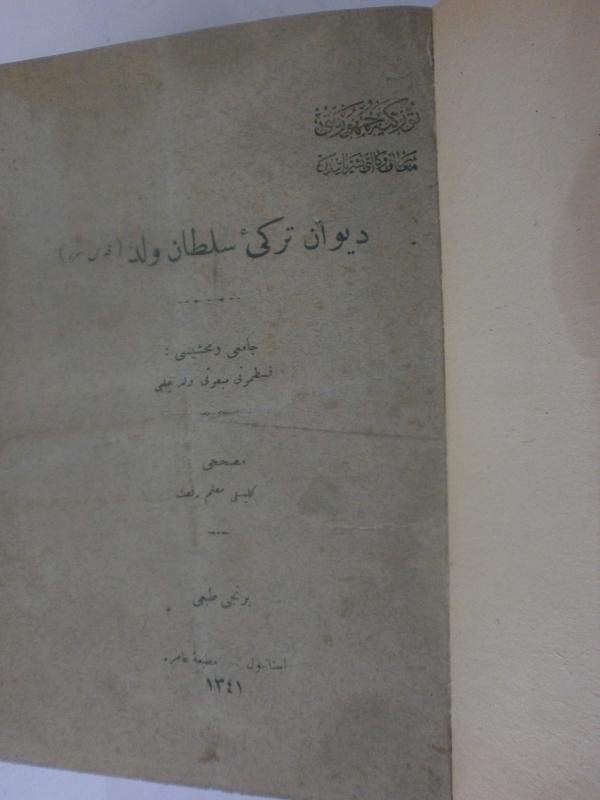 توركيه جمهوريتى
معارف وكالتى نشرياتندن
ديوان تركئ سلطان ولد (قدس سره)
جامعى ومحشيسى :
قسطمونى مبعوثى ولد چلبى
مصححى
كليسلى معلم رفعت
برنجى طبعى
استانبول — مطبعۀ عامره
١٣٤١